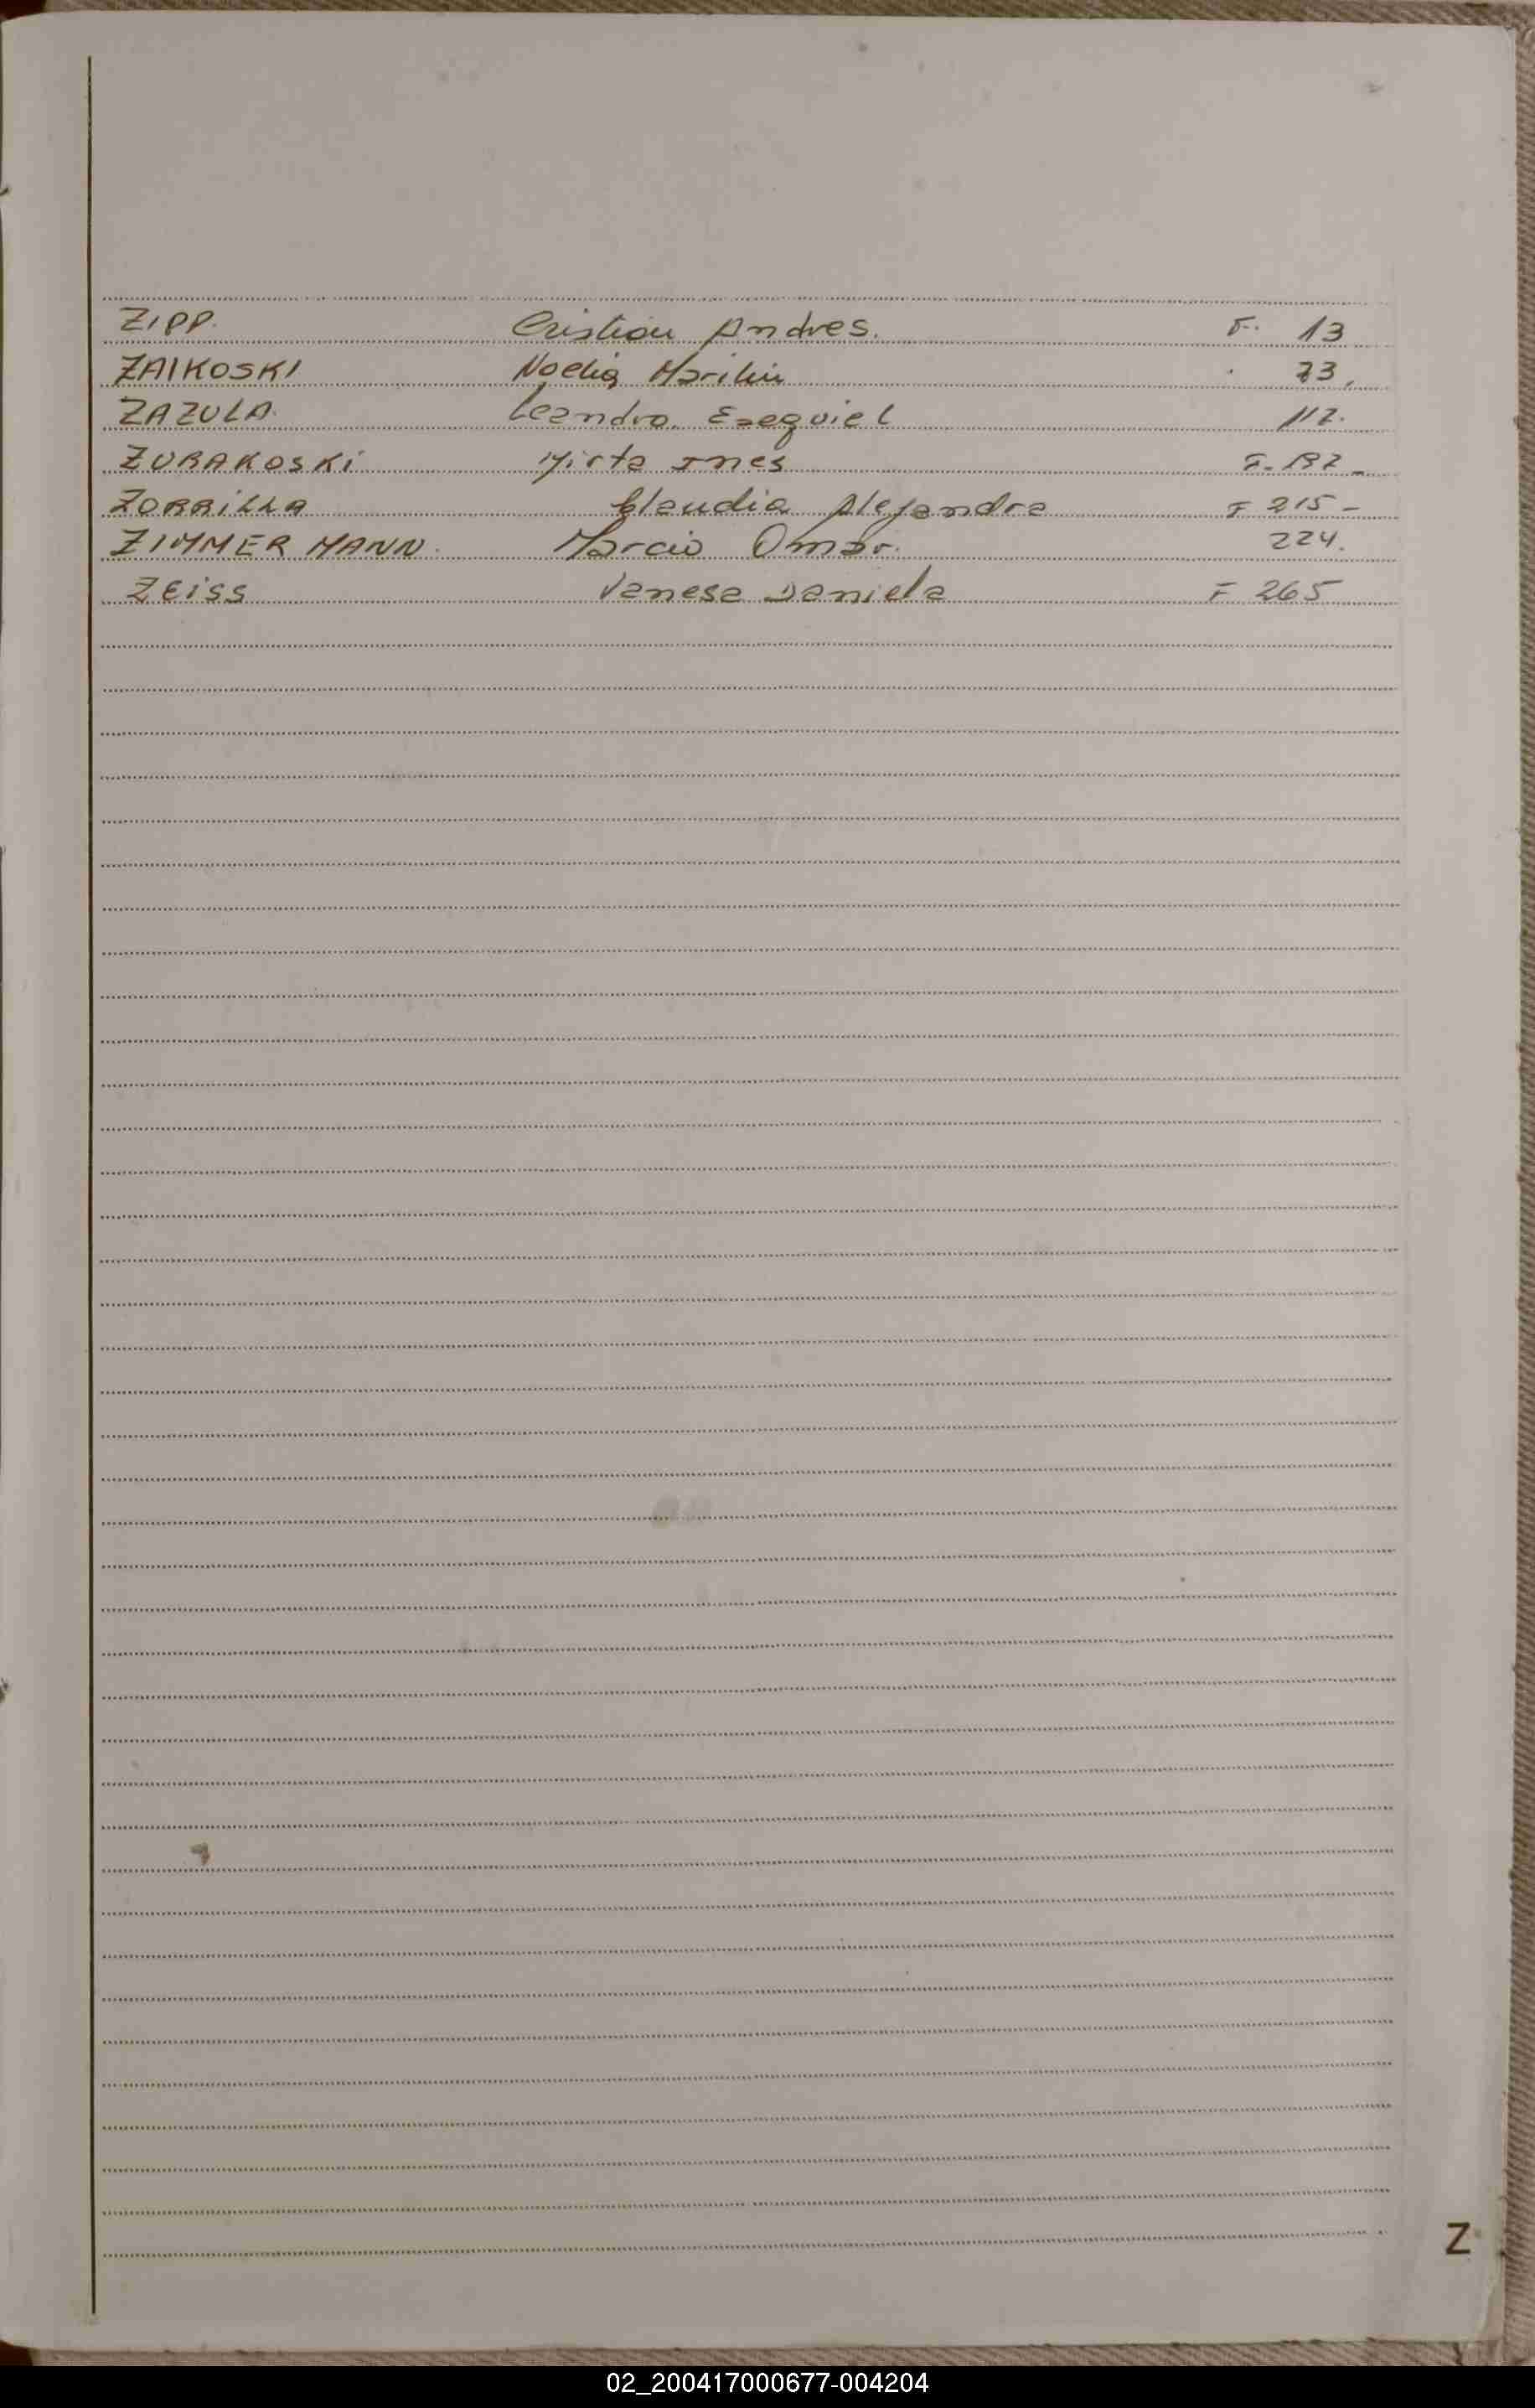 ZIPP. Cristian Andres. F. 13
ZAIKOSKI Noelia Marilin 73.
ZAZULA. Leandro Ezequiel 112.
ZURAKOSKi Mirta Ines F. 192
ZORRiLLA Claudia Alejandra F 215 -
ZIMMERMANN. Marcio Omar. 224.
ZEiSS Vanesa Daniela F 265
Z
02_200417000677-004204